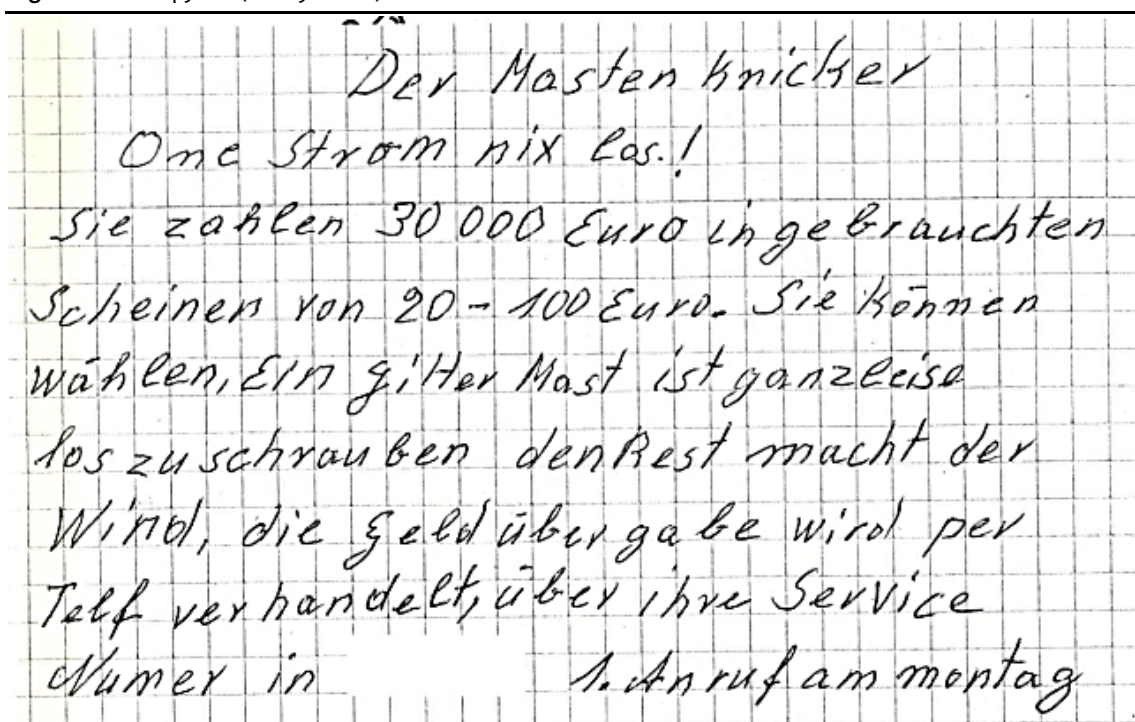 Der Masten Knicker
One Strom nix los.!
Sie zahlen 30 000 Euro in gebrauchten
Scheinen von 20 - 100 Euro. Sie können
wählen, Ein gitter Mast ist ganz leise
los zu schrauben den Rest macht der
Wind, die Geld über gabe wird per
Telf verhandelt, über ihre Service
Numer in 1. Anruf am montag